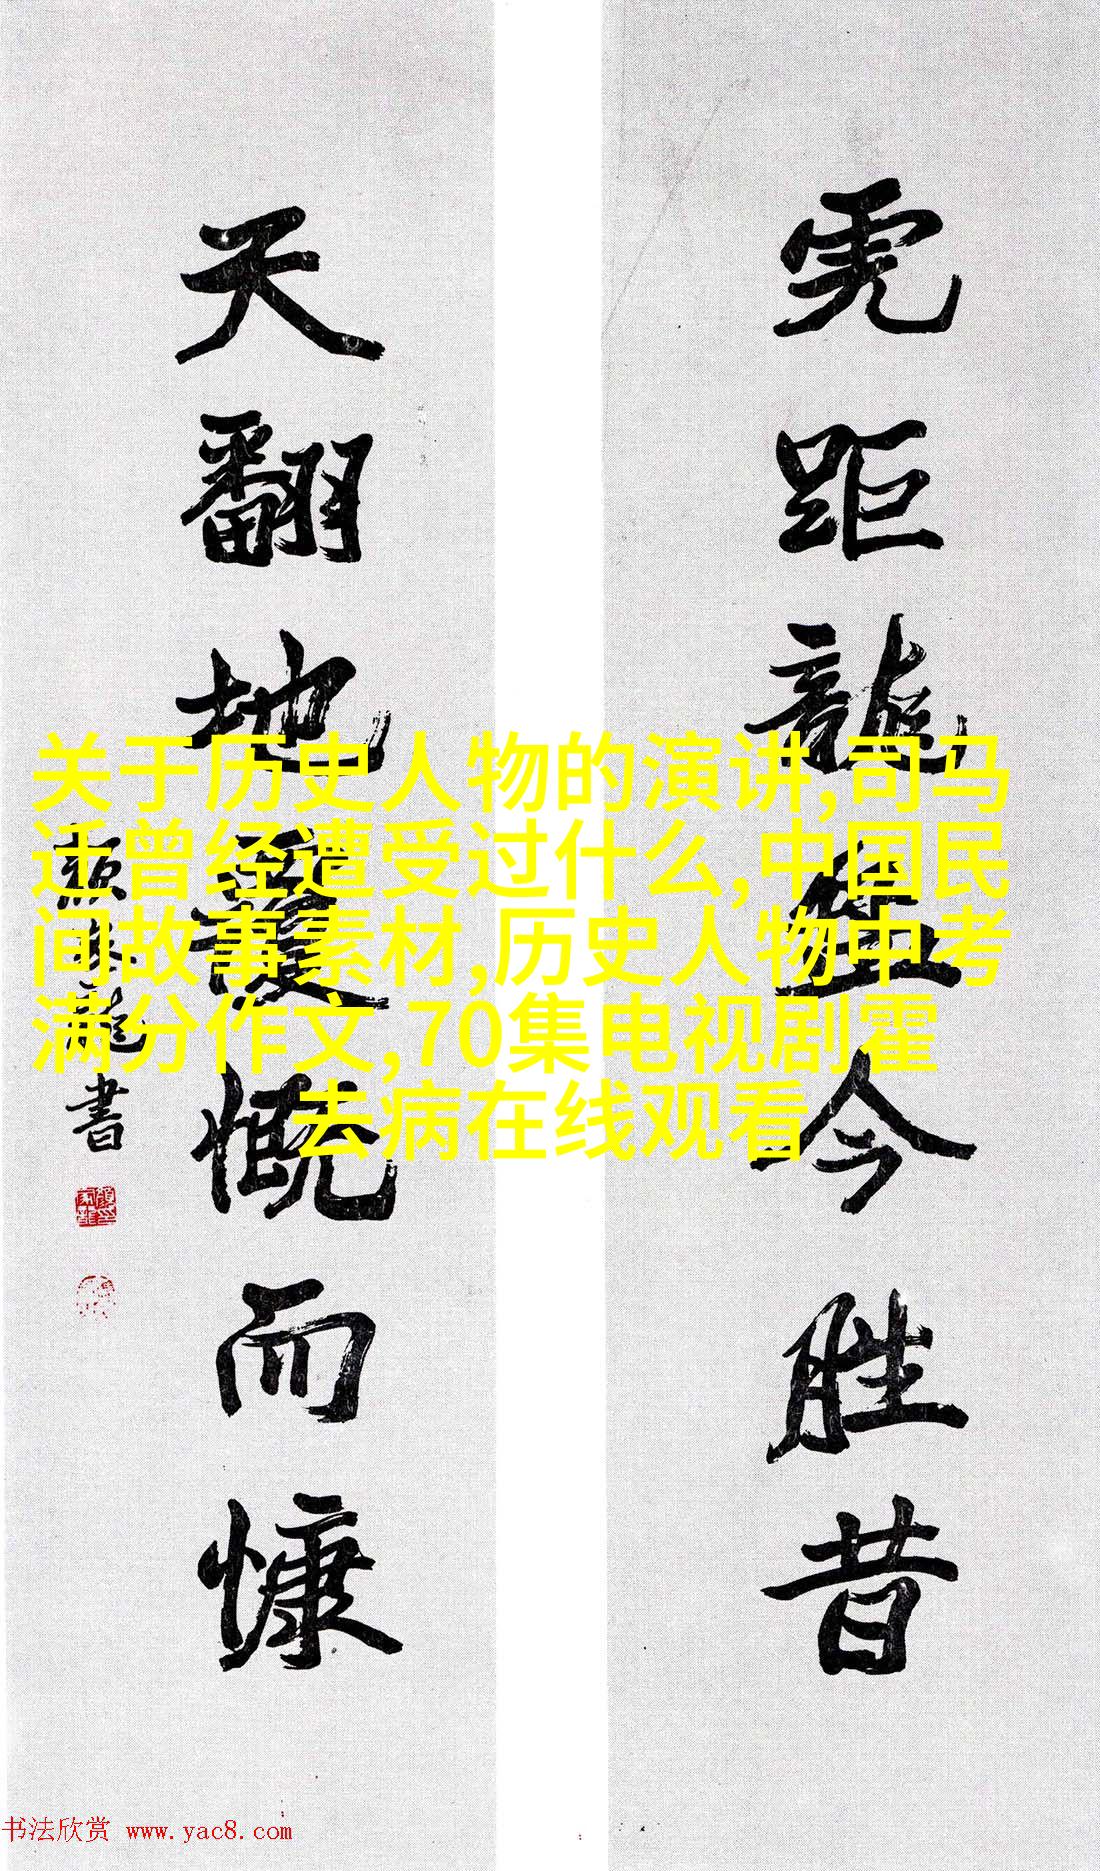 虎距龍蟠今胜昔
天翻地覆慨而慷
顏家龍書
关于历史人物的演讲,司马
迁曾经遭受过什么,中国民
间故事素材,历史人物中考
满分作文,70集电视剧霍
去病在线观看
书法欣赏 www.yac8.com